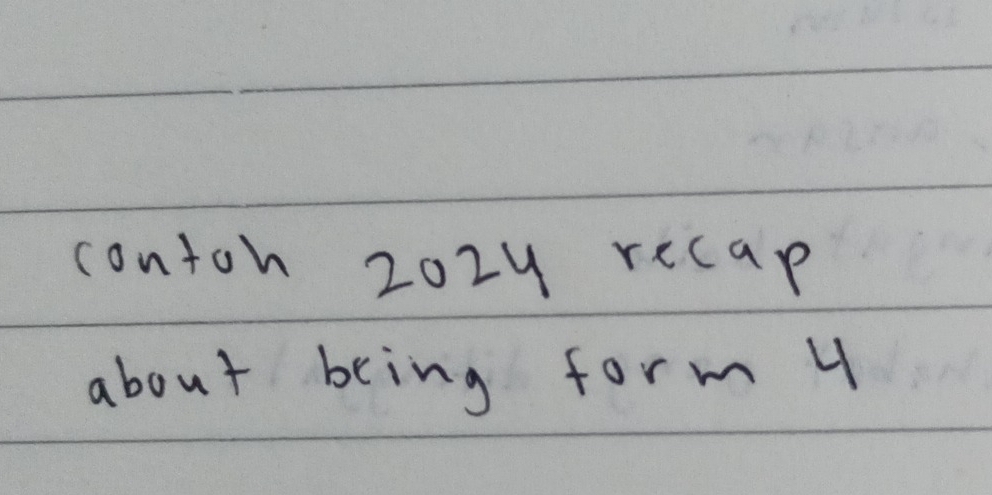 contoh 2024 recap
about being form 4